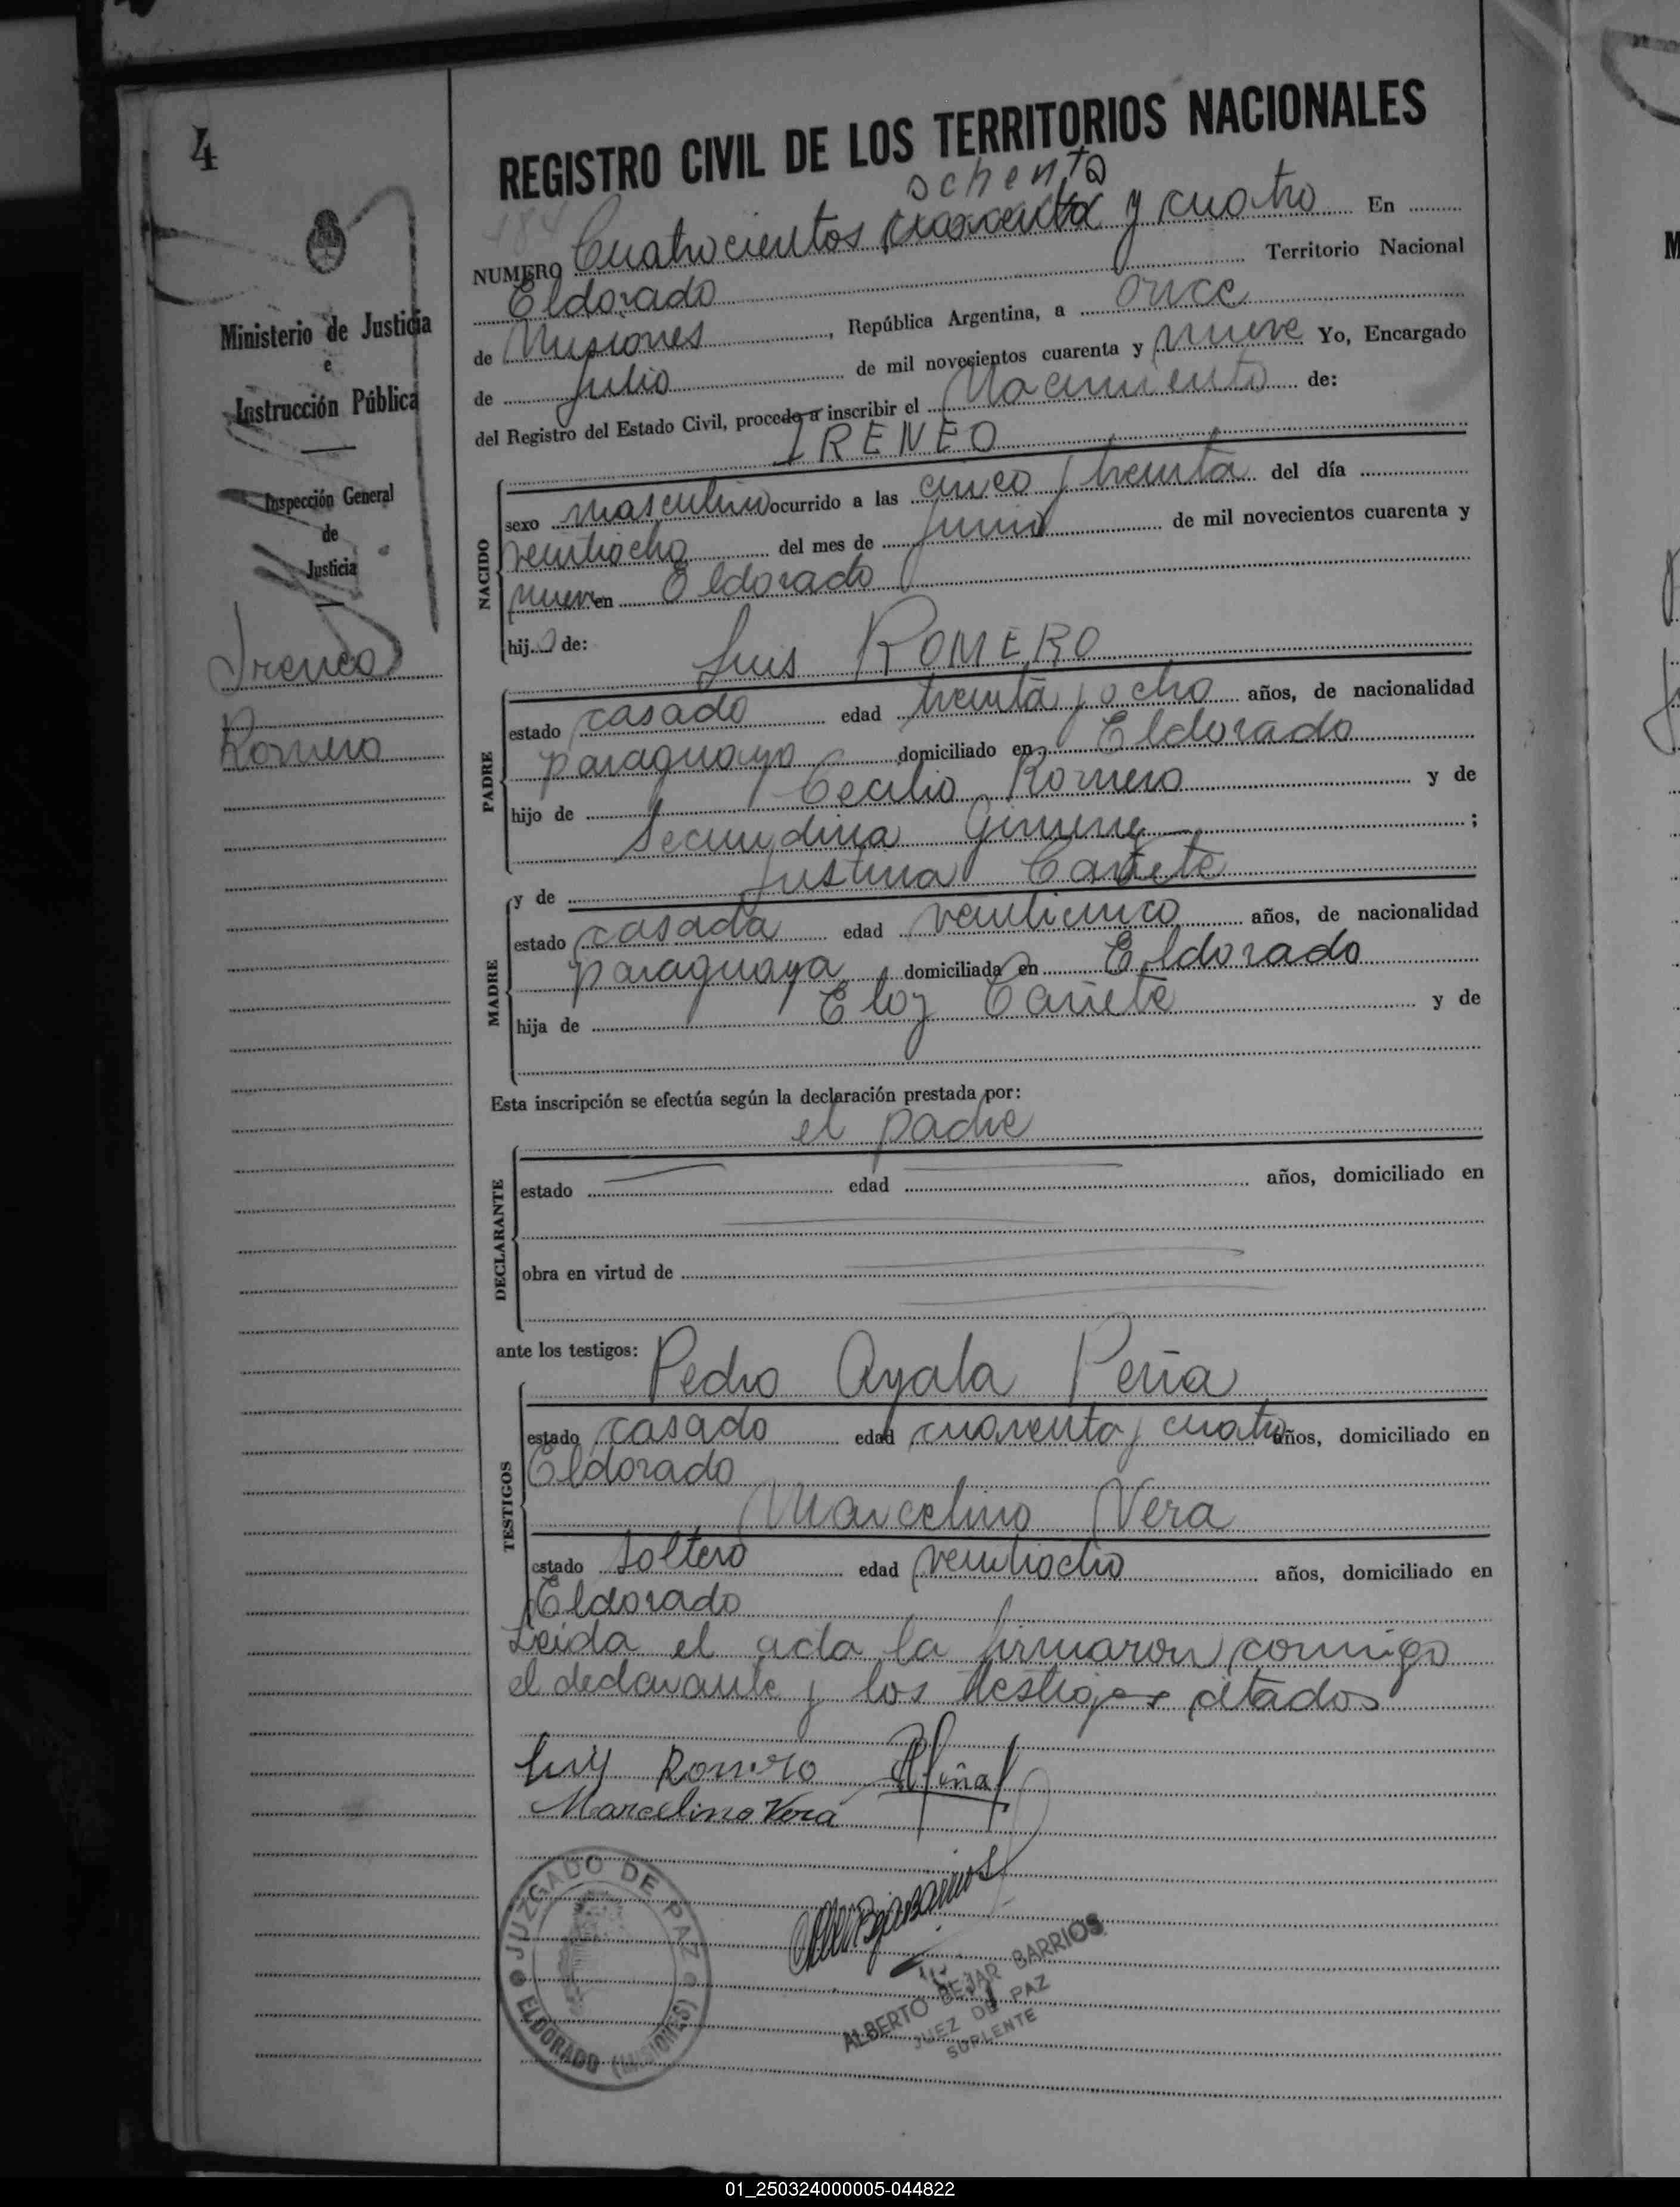 4
REGISTRO CIVIL DE LOS TERRITORIOS NACIONALES
ochenta
484
NUMERO Cuatrocientos cuarenta y cuatro En
Eldorado Territorio Nacional
de Misiones, República Argentina, a once
de Julio de mil novecientos cuarenta y nueve Yo, Encargado
del Registro del Estado Civil, procedo a inscribir el Nacimiento de:
IRENEO
Ministerio de Justicia
e
Instrucción Pública
Inspección General
de
Justicia
Ireneo
Romero
NACIDO
sexo masculino ocurrido a las cinco y treinta del día
veintiocho del mes de junio de mil novecientos cuarenta y
nueve en Eldorado
hijo de: Luis ROMERO
PADRE
estado casado edad treinta y ocho años, de nacionalidad
paraguayo domiciliado en Eldorado
hijo de Cecilio Romero y de
Secundina Gimenez;
y de Justina Cañete
MADRE
estado casada edad veinticinco años, de nacionalidad
paraguaya domiciliada en Eldorado
hija de Eloy Cañete y de
Esta inscripción se efectúa según la declaración prestada por:
el padre
DECLARANTE
estado edad años, domiciliado en
obra en virtud de
ante los testigos: Pedro Ayala Peña
TESTIGOS
estado casado edad cuarenta y cuatro años, domiciliado en
Eldorado
Marcelino Vera
estado soltero edad veintiocho años, domiciliado en
Eldorado
Leida el acta la firmaron conmigo
el declarante y los testigos citados
Luis Romero
Marcelino Vera
JUZGADO DE PAZ
ELDORADO (MISIONES)
ALBERTO BEJAR BARRIOS
JUEZ DE PAZ
SUPLENTE
01_250324000005-044822